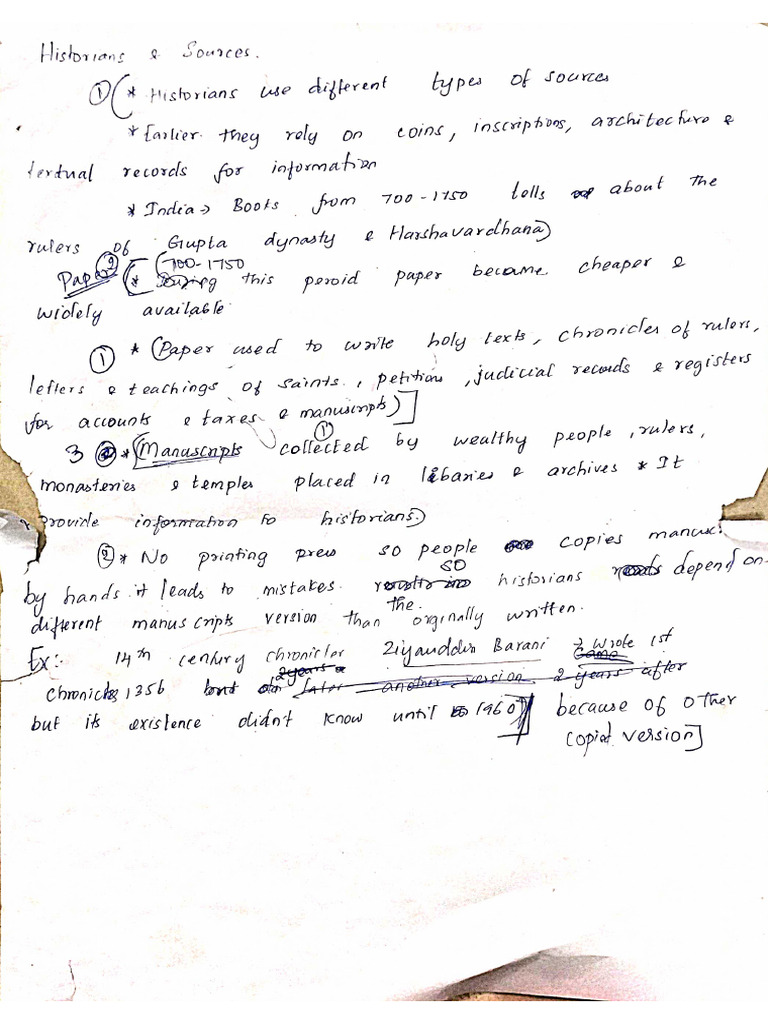 Historians & Sources.
① (* Historians use different types of sources
* Earlier they rely on coins, inscriptions, architecture &
textual records for information
* India → Books from 700-1750 tells about the
rulers of Gupta dynasty & Harshavardhana)
Paper ② [(* 700-1750 During this peroid paper became cheaper &
widely available
① * (Paper used to write holy texts, chronicles of rulers,
letters & teachings of saints, petitions, judicial records & registers
for accounts & taxes & manuscripts)]
3 * (Manuscripts ① collected by wealthy people, rulers,
monasteries & temples placed in libaries & archives * It
provide information to historians.)
② * No printing press so people copies manus
by hands it leads to mistakes so historians depend on
different manuscripts version than the orginally written.
Ex:- 14th century chronicler Ziyauddin Barani wrote 1st
chronicles 1356 but later another version 2 years after
but its existence didn't know until 1960] because of other
copied version]